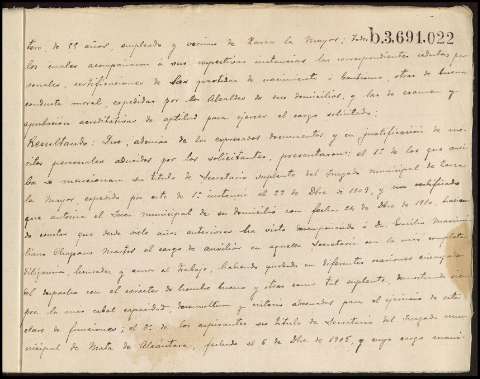 b.3.691.022
tero, de 55 años, empleado y vecino de Zarza la Mayor; todos
los cuales acompañaron á sus respectivas instancias las correspondientes cédulas per
sonales, certificaciones de las partidas de nacimiento ó bautismo, otras de buena
conducta moral, expedidas por los Alcaldes de sus domicilios, y las de examen y
aprobación acreditativas de aptitud para ejercer el cargo solicitado;
Resultando: Que, además de los expresados documentos y en justificación de mé-
ritos personales aducidos por los solicitantes, presentaron: el 1º de los que arri
ba se mencionan su título de Secretario suplente del Juzgado municipal de Zarza
la Mayor, expedido por este de 1ª instancia el 29 de Dbre de 1909, y una certificación
que autoriza el Juez municipal de su domicilio con fecha 24 de Dbre de 1910, hacien
do constar que desde siete años anteriores ha visto desempeñando á Dn. Emilio Maximi
liano Chaparro Martos el cargo de auxiliar en aquella Secretaría con la más completa
diligencia, honradez y amor al trabajo, habiendo quedado en diferentes ocasiones encargado
del despacho con el carácter de hombre bueno y otras como tal suplente, demostrando siem
pre la más cabal capacidad, desenvoltura y criterio adecuados para el ejercicio de esta
clase de funciones; el 2º de los aspirantes su título de Secretario del Juzgado mu
nicipal de Mata de Alcántara, fechado el 6 de Dbre de 1905, y cuyo cargo mani-